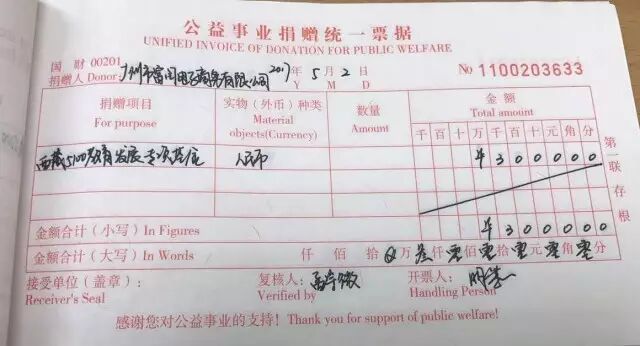 公益事业捐赠统一票据
UNIFIED INVOICE OF DONATION FOR PUBLIC WELFARE
国 财 00201
捐赠人 Donor: 广州市富同电子商务有限公司 2017 年 5 月 2 日
Y M D
No 1100203633
捐赠项目 For purpose
实物（外币）种类 Material objects(Currency)
数量 Amount
金额 Total amount
千 百 十 万 千 百 十 元 角 分
西藏5100教育发展专项基金 人民币 ¥ 3 0 0 0 0 0
金额合计（小写）In Figures ¥ 3 0 0 0 0 0
金额合计（大写）In Words 仟 佰 拾 万 叁仟 零佰 零拾 零元 零角 零分
接受单位（盖章）: Receiver's Seal
复核人: Verified by
开票人: Handling Person
第一联存根
感谢您对公益事业的支持！Thank you for support of public welfare!